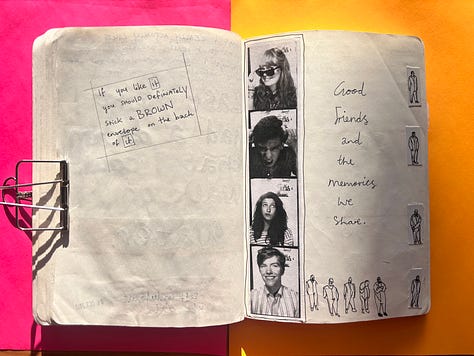 If you like it
you should definately
stick a BROWN
envelope on the back
of it
Good
friends
and
the
memories
we
share.